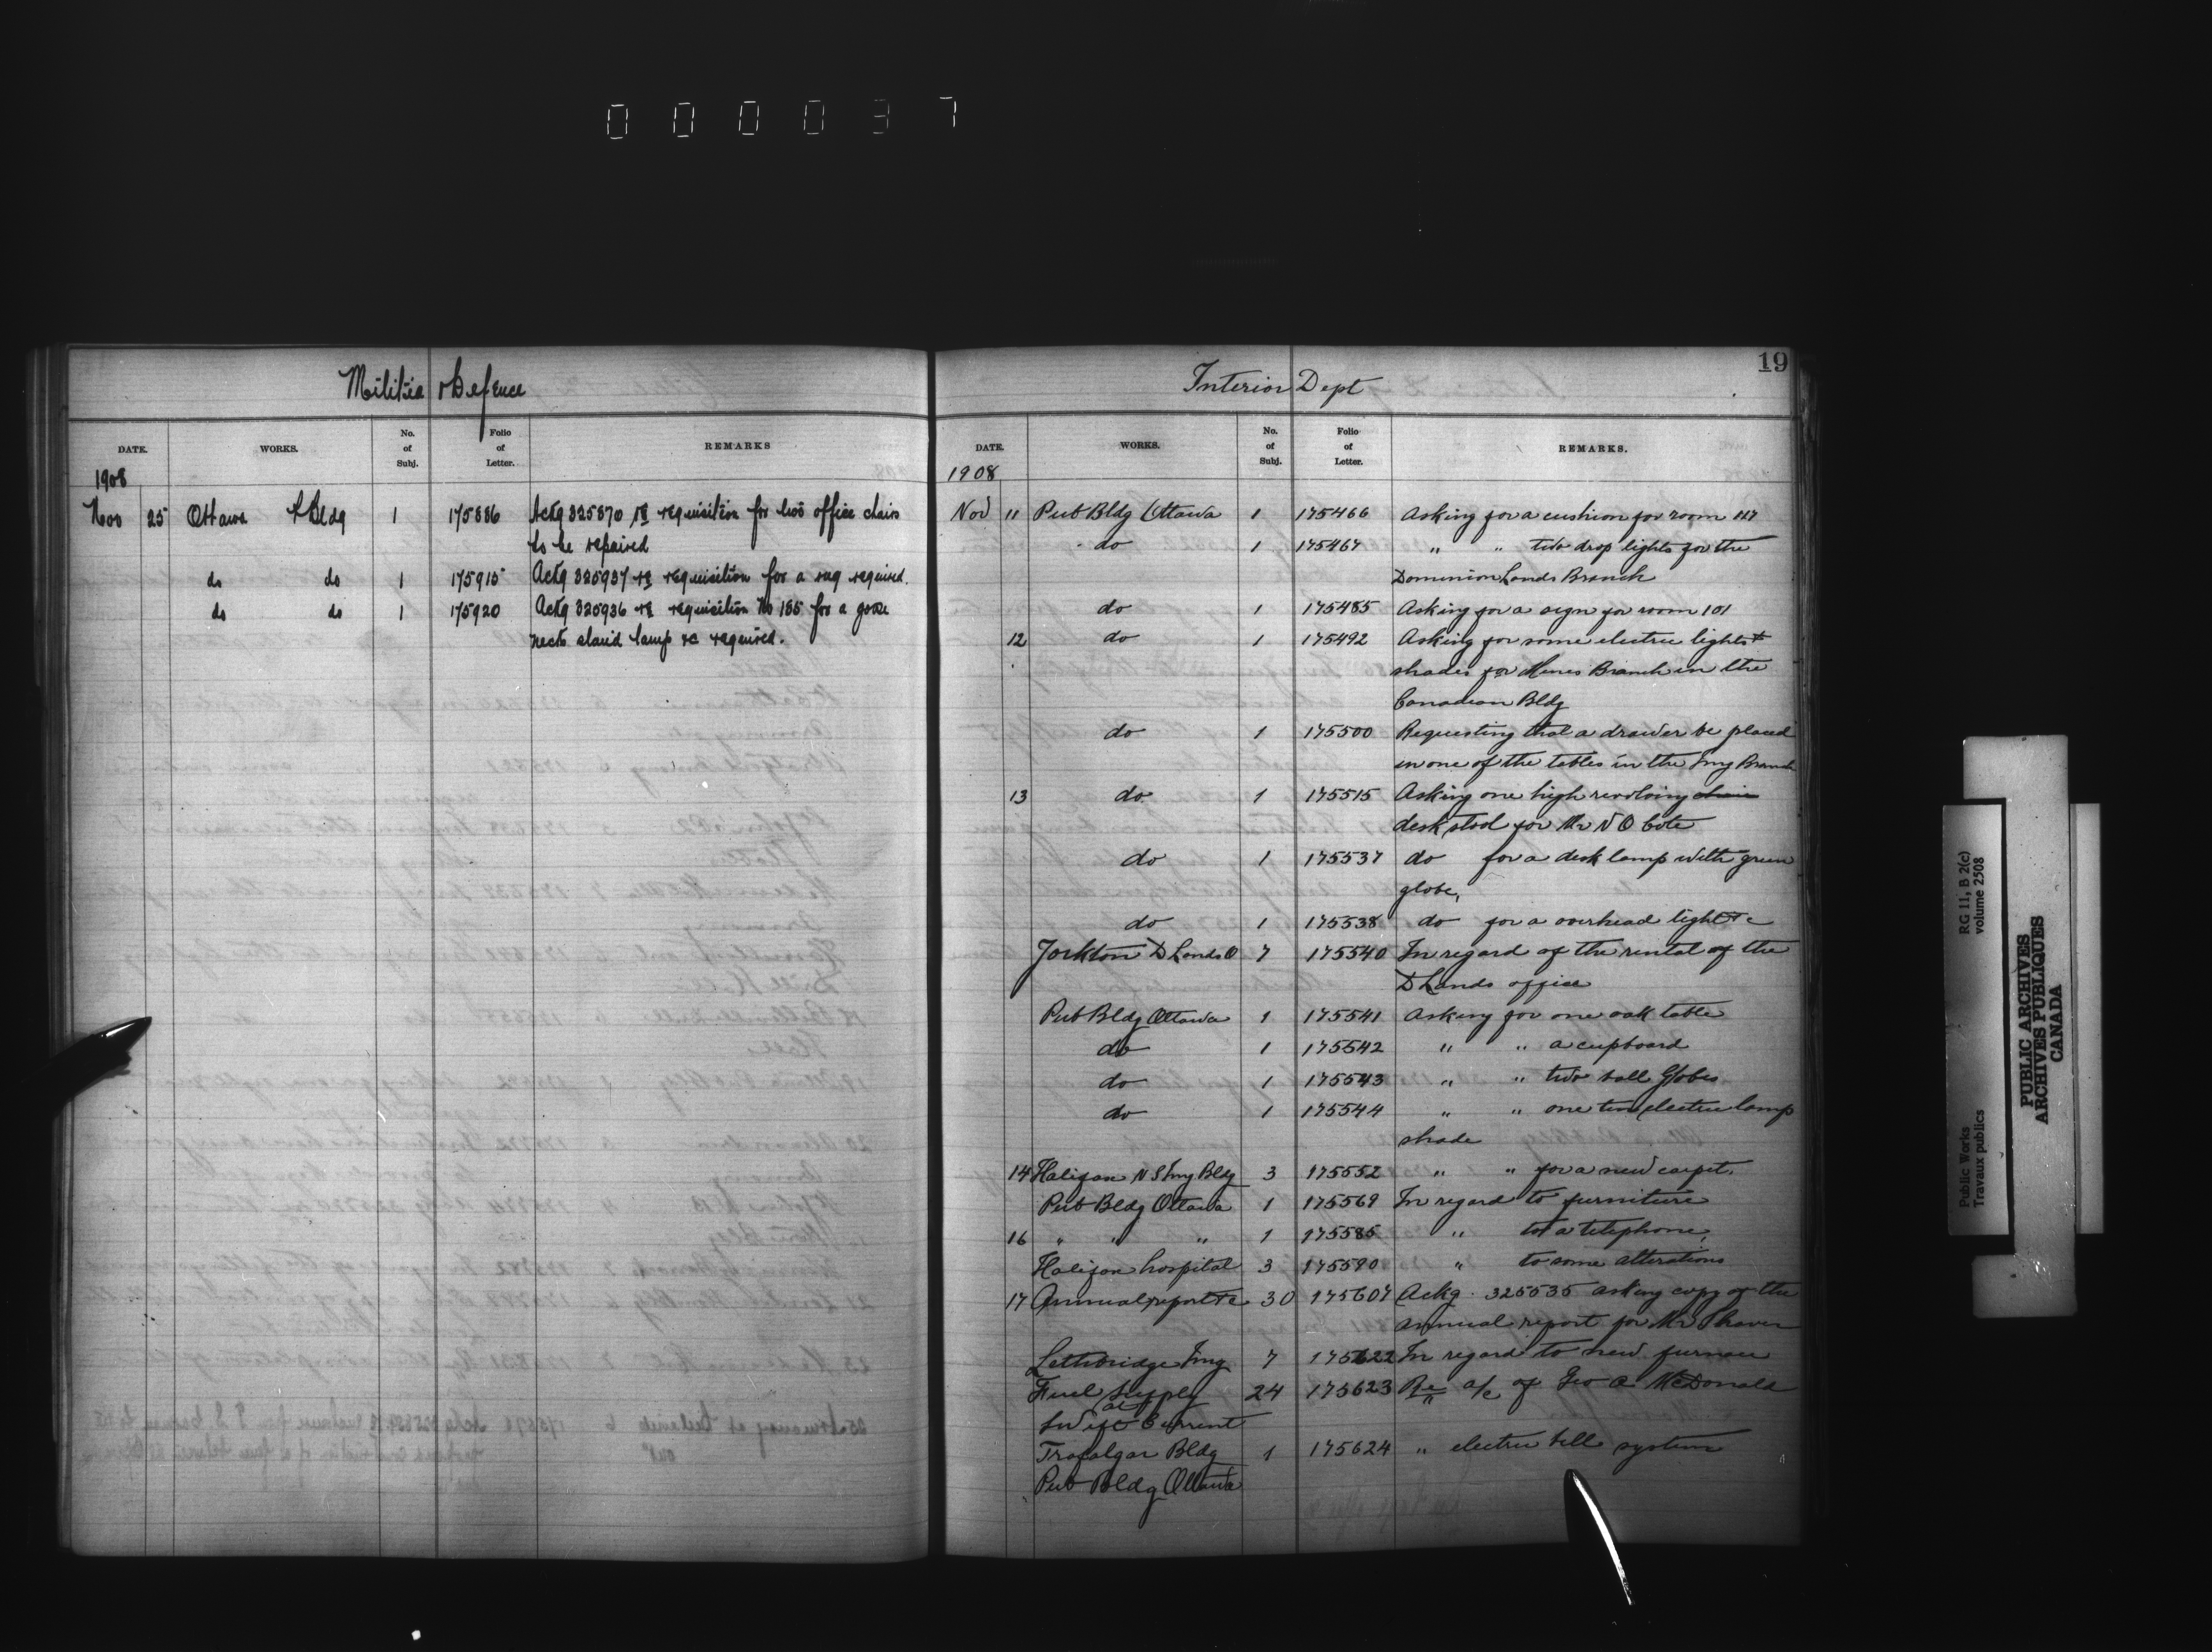 000037
Militia & Defence
DATE. WORKS. No. of Subj. Folio of Letter. REMARKS
1908
Nov 25 Ottawa P Bldg 1 175886 Ackg 325870 re requisition for two office chairs
to be repaired
do do 1 175915 Ackg 325937 re requisition for a rug required.
do do 1 175920 Ackg 325936 re requisition No 185 for a goose
neck stand lamp &c required.
19
Interior Dept
DATE. WORKS. No. of Subj. Folio of Letter. REMARKS.
1908
Nov 11 Pub Bldg Ottawa 1 175466 Asking for a cushion for room 117
do 1 175467 " " two drop lights for the
Dominion Lands Branch
do 1 175485 Asking for a sign for room 101
12 do 1 175492 Asking for some electric lights &
shades for Mines Branch in the
Canadian Bldg
do 1 175500 Requesting that a drawer be placed
in one of the tables in the Img Branch
13 do 1 175515 Asking one high revolving chair
desk stool for Mr N O Cote
do 1 175537 do for a desk lamp with green
globe,
do 1 175538 do for a overhead light &c
Yorkton D Lands O 7 175540 In regard of the rental of the
D Lands office
Pub Bldg Ottawa 1 175541 Asking for one oak table
do 1 175542 " " a cupboard
do 1 175543 " " two ball Globes
do 1 175544 " " one tin electric lamp
shade
14 Halifax N S Img Bldg 3 175552 " " for a new carpet.
Pub Bldg Ottawa 1 175569 In regard to furniture
16 " " " 1 175585 " to a telephone,
Halifax hospital 3 175590 " to some alterations
17 Annual report &c 30 175607 Ackg. 325535 asking copy of the
annual report for Mr Shaver
Lethbridge Img 7 175622 In regard to new furnace
Fuel supply 24 175623 Re a/c of Geo A McDonald
at
Swift Current
Trafalgar Bldg 1 175624 " electric bell system
Pub Bldg Ottawa
Public Works RG 11, B 2(c)
Travaux publics volume 2508
PUBLIC ARCHIVES
ARCHIVES PUBLIQUES
CANADA